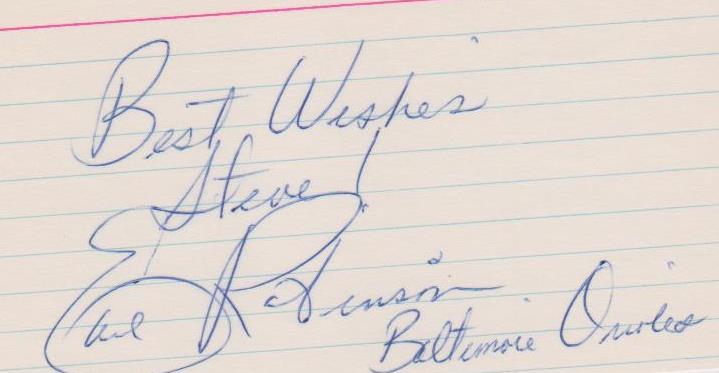 Best Wishes
Steve!
Earl Robinson
Baltimore Orioles